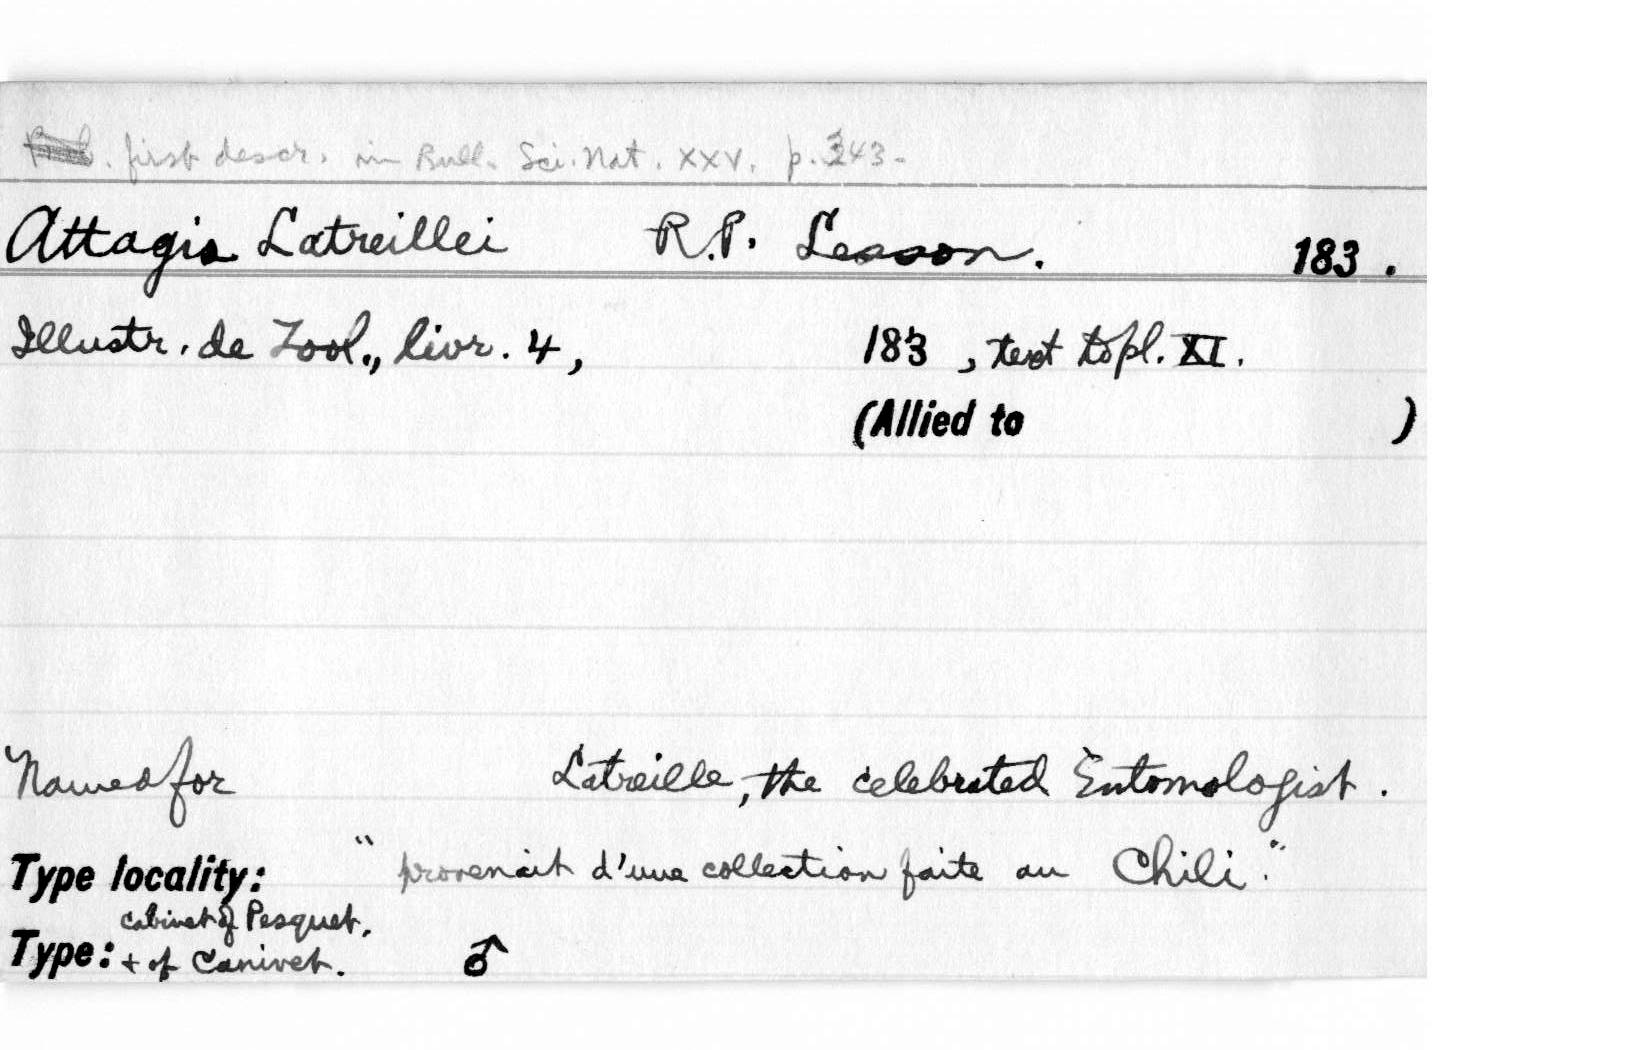 first descr. in Bull. Sci. Nat. XXV. p. 243-
Attagis Latreillei R.P. Lesson. 183 .
Illustr. de Zool., livr. 4, 183 , text to pl. XI.
(Allied to )
Named for Latreille, the celebrated Entomologist.
Type locality: "provenait d'une collection faite au Chili."
cabinet of Pesquet.
Type: + of Canivet. ♂